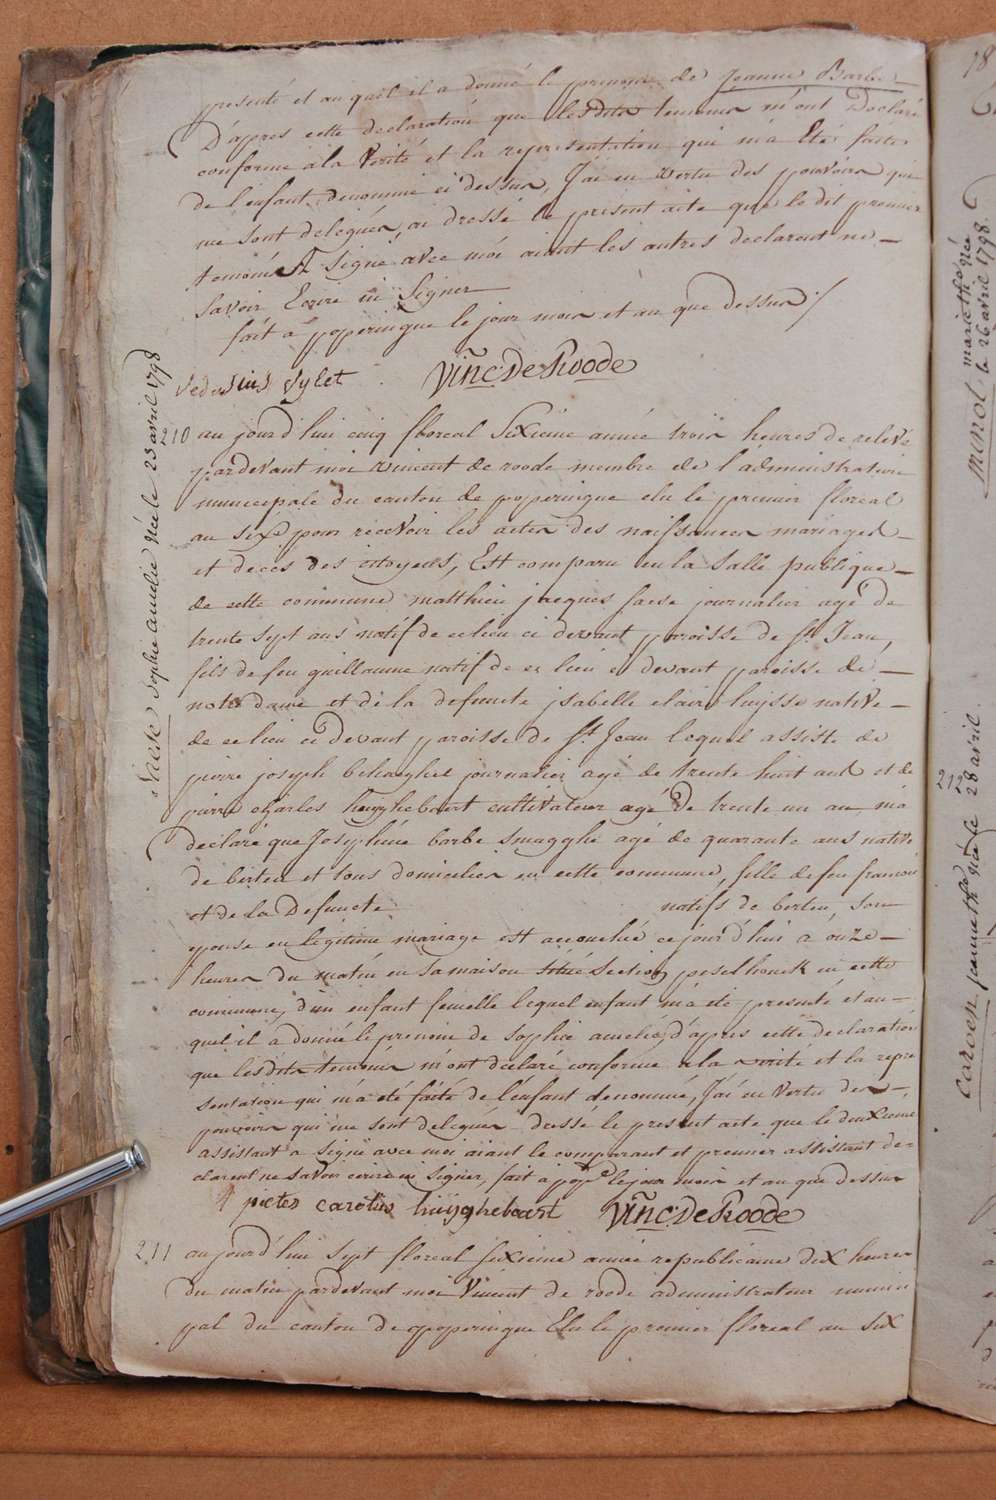 presenté et auquel il a donné le prenom de Jeanne Barbe
D'apres cette declaration que les dits temoins m'ont Declaré
conforme a la Verité et la representation qui m'a Eté faite
de l'enfant denommé ci dessus, J'ai en vertu des pouvoirs qui
me sont delegués, ai dressé le present acte que le dit premier
temoin a Signé avec moi aiant les autres declarent ne
savoir Ecrire ni Signer
fait a poperingue le jour mois et an que dessus /
sylet Vinc: De Roode
210 au jourd'hui cinq floreal Sixieme année trois heures de relevé
pardevant moi vincent de roode membre de l'administration
municipale du canton de poperingue elu le premier floreal
an six pour recevoir les actes des naissances mariages
et deces des citoyens, Est comparu en la Salle publique
de cette commune matthieu jacques saese journalier agé de
trente sept ans natif de ce lieu ci devant paroisse de St Jean,
fils de feu guillaume natif de ce lieu ci devant paroisse de
notre dame et de la defuncte jsabelle claire luysse native
de ce lieu ci devant paroisse de St Jean lequel assisté de
pierre joseph behaeghel journalier agé de trente huit ans et de
pierre charles huyghebaert cultivateur agé De trente un an m'a
declaré que Josephine barbe smagghe agé de quarante ans native
de berten et tous domicilier en cette commune, fille de feu francois
et de la Defuncte natifs de berten, son
epouse en legitime mariage est accouché ce jourd'hui a onze
heures du matin en sa maison située section peselhoeck en cette
commune, d'un enfant femelle lequel enfant m'a eté presenté et au
quel il a donné le prenom de Sophie amelie, d'apres cette declaration
que les dits temoins m'ont declaré conforme a la verité et la repre
sentation qui m'a eté faite de l'enfant denommé, J'ai en vertu des
pouvoirs qui me sont delegués dressé le present acte que le deuxieme
assistant a Signé avec moi aiant le comparant et premier assistant de
clarent ne savoir ecrire ni Signer, fait a pope le jour mois et an que dessus
pieter carolus huijghebaert Vinc: De Roode
211 aujourd'hui sept floreal sixieme année republicaine dix heures
du matin pardevant moi Vincent de roode administrateur munici
pal du canton de poperingue Elu le premier floreal an six
Saese Sophie amelie née le 25 avril 1798
18
minol marie th. née
le 26 avril 1798.
212
carcien jeanne th. née le 28 avril.